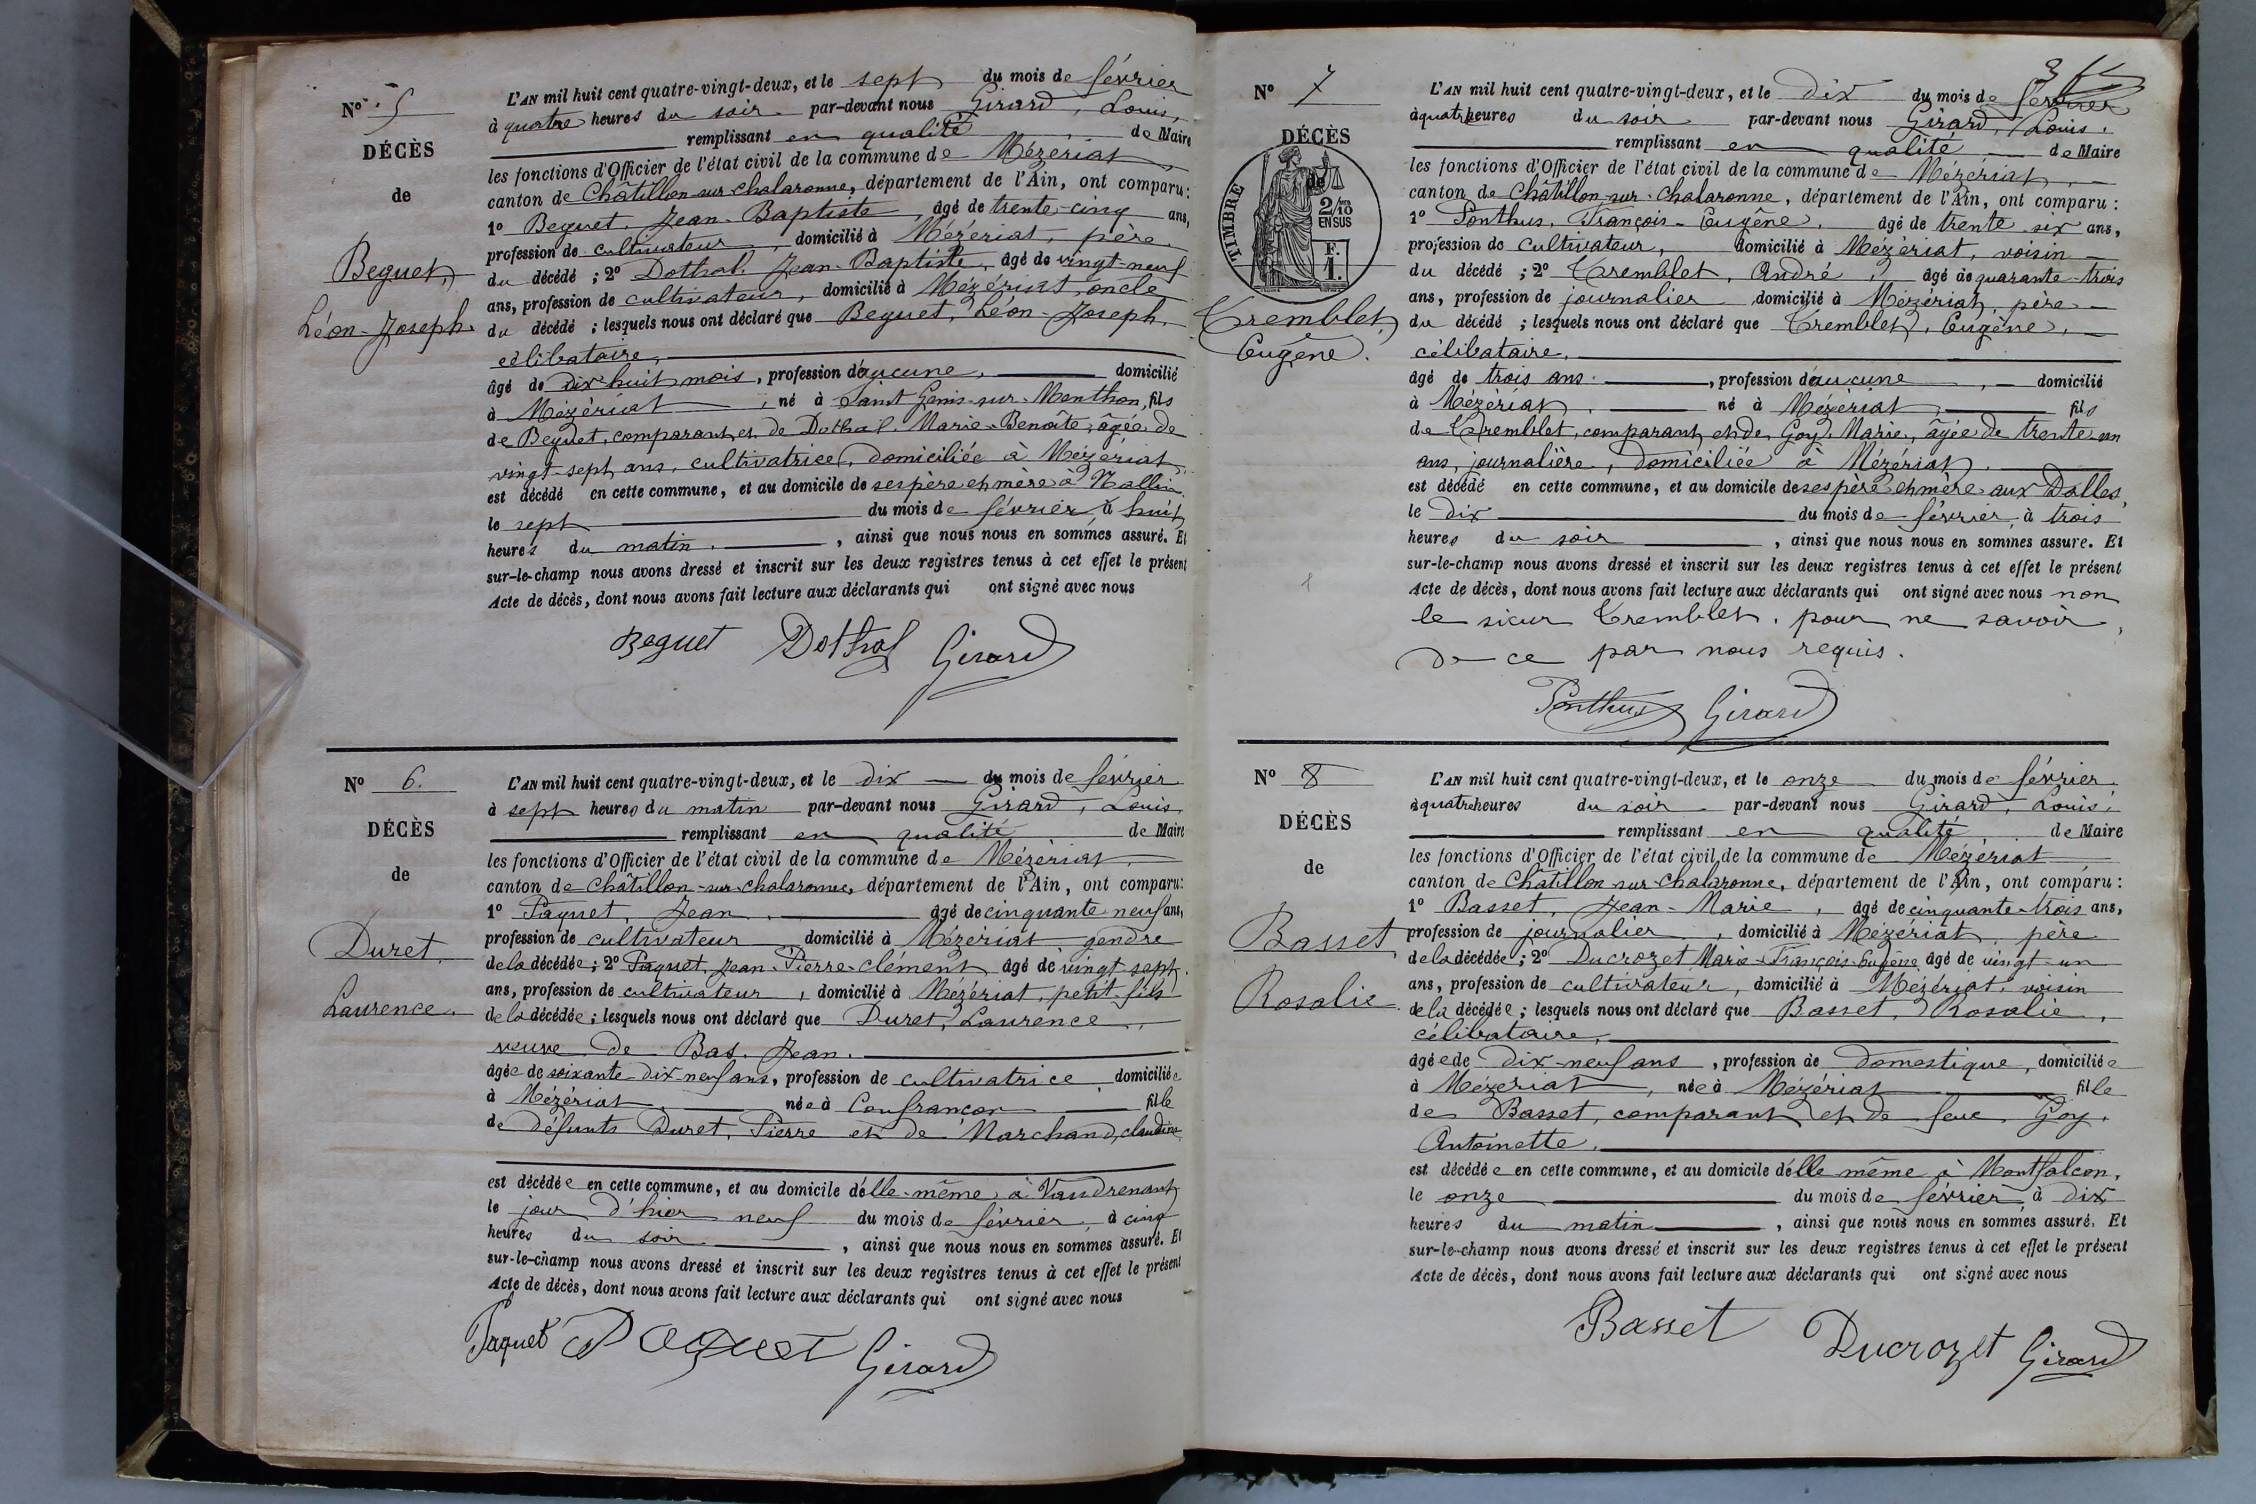 N° 5
DÉCÈS
de
Beguet,
Léon-Joseph.
L'AN mil huit cent quatre-vingt-deux, et le sept du mois de février
à quatre heures du soir par-devant nous Girard, Louis,
remplissant en qualité de Maire
les fonctions d'Officier de l'état civil de la commune de Mézériat,
canton de Châtillon-sur-Chalaronne, département de l'Ain, ont comparu :
1° Beguet, Jean-Baptiste, âgé de trente-cinq ans,
profession de cultivateur, domicilié à Mézériat, père
du décédé ; 2° Dothal, Jean-Baptiste, âgé de vingt-neuf
ans, profession de cultivateur, domicilié à Mézériat, oncle
du décédé ; lesquels nous ont déclaré que Beguet, Léon-Joseph,
célibataire,
âgé de dix huit mois, profession d'aucune, domicilié
à Mézériat, né à Saint Genis-sur-Menthon, fils
de Beguet, comparant, et de Dothal Marie-Benoîte, âgée de
vingt-sept ans, cultivatrice, domiciliée à Mézériat,
est décédé en cette commune, et au domicile de ses père et mère à
le sept du mois de février, à huit
heures du matin, ainsi que nous nous en sommes assuré. Et
sur-le-champ nous avons dressé et inscrit sur les deux registres tenus à cet effet le présent
Acte de décès, dont nous avons fait lecture aux déclarants qui ont signé avec nous
Beguet Dothal Girard
N° 6.
DÉCÈS
de
Duret,
Laurence.
L'AN mil huit cent quatre-vingt-deux, et le dix du mois de février
à sept heures du matin par-devant nous Girard, Louis,
remplissant en qualité de Maire
les fonctions d'Officier de l'état civil de la commune de Mézériat,
canton de Châtillon-sur-Chalaronne, département de l'Ain, ont comparu :
1° Paquet, Jean, âgé de cinquante-neuf ans,
profession de cultivateur domicilié à Mézériat gendre
de la décédée ; 2° Paquet, Jean-Pierre-Clément, âgé de vingt-sept
ans, profession de cultivateur, domicilié à Mézériat, petit-fils
de la décédée ; lesquels nous ont déclaré que Duret, Laurence,
veuve de Bas, Jean.
âgée de soixante-dix-neuf ans, profession de cultivatrice, domiciliée
à Mézériat, née à Confrançon fille
de défunts Duret, Pierre et de Marchand, Claudine,
est décédée en cette commune, et au domicile d'elle-même, à Vaudrenant
le jour d'hier neuf du mois de février, à cinq
heures du soir, ainsi que nous nous en sommes assuré. Et
sur-le-champ nous avons dressé et inscrit sur les deux registres tenus à cet effet le présent
Acte de décès, dont nous avons fait lecture aux déclarants qui ont signé avec nous
Paquet Paquet Girard
3
N° 7
DÉCÈS
de
TIMBRE
2/10
EN SUS
F.
1.
Tremblet,
Eugène.
L'AN mil huit cent quatre-vingt-deux, et le dix du mois de février
à quatre heures du soir par-devant nous Girard, Louis,
remplissant en qualité de Maire
les fonctions d'Officier de l'état civil de la commune de Mézériat,
canton de Châtillon-sur-Chalaronne, département de l'Ain, ont comparu :
1° Ponthus, François-Eugène, âgé de trente-six ans,
profession de cultivateur, domicilié à Mézériat, voisin
du décédé ; 2° Tremblet, André, âgé de quarante-trois
ans, profession de journalier domicilié à Mézériat, père
du décédé ; lesquels nous ont déclaré que Tremblet, Eugène,
célibataire,
âgé de trois ans, profession d'aucune, domicilié
à Mézériat, né à Mézériat, fils
de Tremblet, comparant, et de Goy, Marie, âgée de trente-un
ans, journalière, domiciliée à Mézériat,
est décédé en cette commune, et au domicile de ses père et mère aux Dalles,
le dix du mois de février, à trois
heures du soir, ainsi que nous nous en sommes assuré. Et
sur-le-champ nous avons dressé et inscrit sur les deux registres tenus à cet effet le présent
Acte de décès, dont nous avons fait lecture aux déclarants qui ont signé avec nous non
le sieur Tremblet, pour ne savoir,
de ce par nous requis.
Ponthus Girard
N° 8
DÉCÈS
de
Basset,
Rosalie.
L'AN mil huit cent quatre-vingt-deux, et le onze du mois de février
à quatre heures du soir par-devant nous Girard, Louis,
remplissant en qualité de Maire
les fonctions d'Officier de l'état civil de la commune de Mézériat
canton de Châtillon-sur-Chalaronne, département de l'Ain, ont comparu :
1° Basset, Jean-Marie, âgé de cinquante-trois ans,
profession de journalier, domicilié à Mézériat, père
de la décédée ; 2° Ducrozet Marie-François-Eugène, âgé de vingt-un
ans, profession de cultivateur, domicilié à Mézériat, voisin
de la décédée ; lesquels nous ont déclaré que Basset, Rosalie,
célibataire,
âgée de dix-neuf ans, profession de domestique, domiciliée
à Mézériat, née à Mézériat fille
de Basset, comparant et de feue Goy,
Antoinette,
est décédée en cette commune, et au domicile d'elle même à Montfalcon,
le onze du mois de février, à dix
heures du matin, ainsi que nous nous en sommes assuré. Et
sur-le-champ nous avons dressé et inscrit sur les deux registres tenus à cet effet le présent
Acte de décès, dont nous avons fait lecture aux déclarants qui ont signé avec nous
Basset Ducrozet Girard